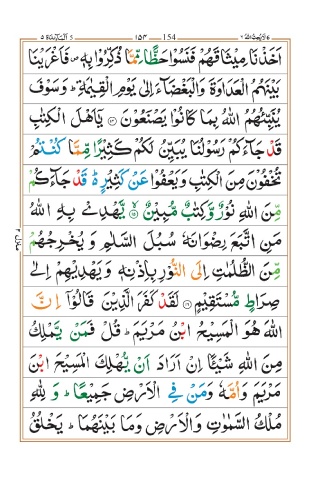 لا یحب اللہ ٦ ١٥٣ 154 المآئدة ٥
اَخَذْنَا مِیْثَاقَهُمْ فَنَسُوْا حَظًّا مِّمَّا ذُكِّرُوْا بِهٖ ۪ فَاَغْرَیْنَا
بَیْنَهُمُ الْعَدَاوَةَ وَالْبَغْضَآءَ اِلٰى یَوْمِ الْقِیٰمَةِ ؕ وَسَوْفَ
یُنَبِّئُهُمُ اللّٰهُ بِمَا كَانُوْا یَصْنَعُوْنَ ﴿۱۴﴾ یٰۤاَهْلَ الْكِتٰبِ
قَدْ جَآءَكُمْ رَسُوْلُنَا یُبَیِّنُ لَكُمْ كَثِیْرًا مِّمَّا كُنْتُمْ
تُخْفُوْنَ مِنَ الْكِتٰبِ وَیَعْفُوْا عَنْ كَثِیْرٍ ؕ۬ قَدْ جَآءَكُمْ
مِّنَ اللّٰهِ نُوْرٌ وَّكِتٰبٌ مُّبِیْنٌ ﴿۱۵﴾ یَّهْدِیْ بِهِ اللّٰهُ
مَنِ اتَّبَعَ رِضْوَانَهٗ سُبُلَ السَّلٰمِ وَیُخْرِجُهُمْ
مِّنَ الظُّلُمٰتِ اِلَى النُّوْرِ بِاِذْنِهٖ وَیَهْدِیْهِمْ اِلٰى
صِرَاطٍ مُّسْتَقِیْمٍ ﴿۱۶﴾ لَقَدْ كَفَرَ الَّذِیْنَ قَالُوْۤا اِنَّ
اللّٰهَ هُوَ الْمَسِیْحُ ابْنُ مَرْیَمَ ؕ قُلْ فَمَنْ یَّمْلِكُ
مِنَ اللّٰهِ شَیْئًا اِنْ اَرَادَ اَنْ یُّهْلِكَ الْمَسِیْحَ ابْنَ
مَرْیَمَ وَاُمَّهٗ وَمَنْ فِی الْاَرْضِ جَمِیْعًا ؕ وَلِلّٰهِ
مُلْكُ السَّمٰوٰتِ وَالْاَرْضِ وَمَا بَیْنَهُمَا ؕ یَخْلُقُ